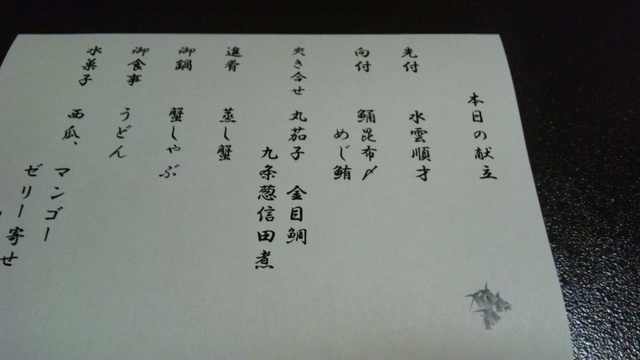 本日の献立
先付 水雲順才
向付 鯒昆布〆
めじ鮪
炊き合せ 丸茄子 金目鯛
九条葱信田煮
進肴 蒸し蟹
御鍋 蟹しゃぶ
御食事 うどん
水菓子 西瓜、マンゴー
ゼリー寄せ